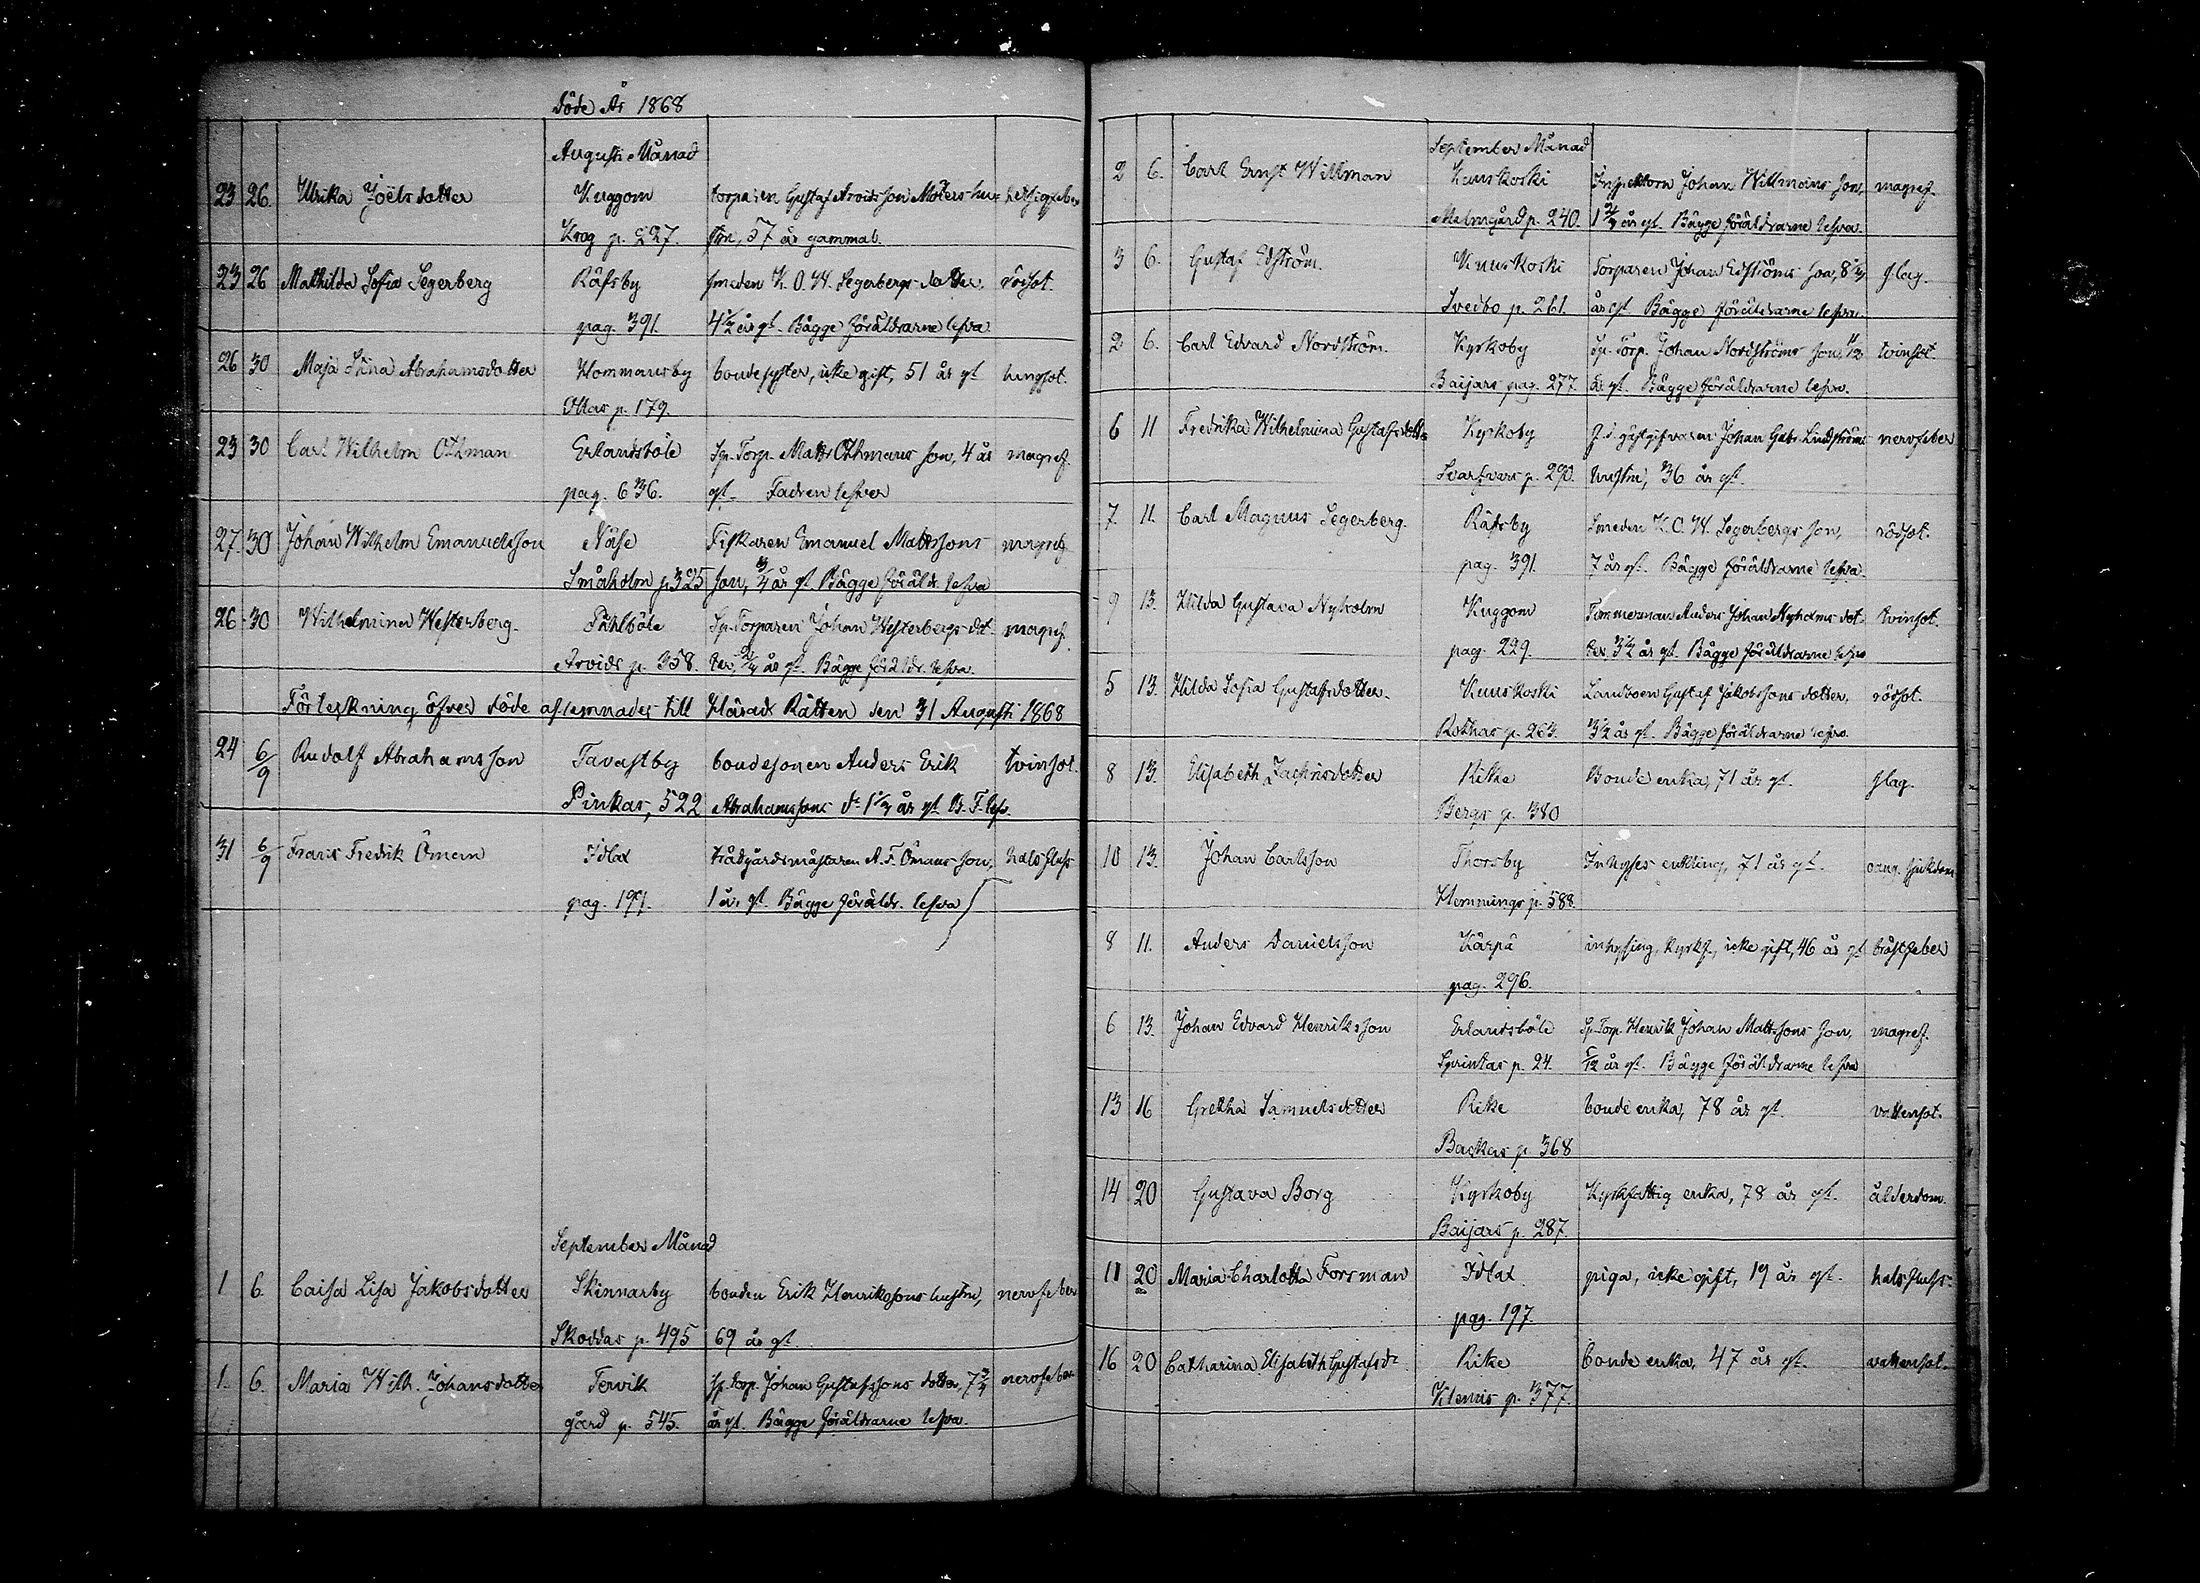 Döde År 1868
Augusti Månad
23 26 Ulrika Joëlsdotter Kuggom torparen Gustaf Arvidsson Mölers hu- hetsigfeber
Krog p. 227. stru, 57 år gammal.
23 26 Mathilda Sofia Segerberg Räfsby smeden K. O. W. Segerbergs dotter, rödsot.
pag. 391. 4 1/2 år gl. Bägge föräldrarne lefva
26 30 Maja Stina Abrahamsdotter Hommansby bondesyster, icke gift, 51 år gl lungsot.
Ollas p. 179.
23 30 Carl Wilhelm Öhman Erlandsböle Sp. Torp. Matts Öhmans son, 4 år magref.
pag. 636. gl. Fadren lefver
27. 30 Johan Wilhelm Emanuelsson Näse Fiskaren Emanuel Mattssons magref.
Småholm p. 325 son, 3/4 år gl. Bägge föräldr. lefva
26 30 Wilhelmina Westerberg. Påhlböle Sp. Torparen Johan Westerbergs dot- magref.
Arvids p. 358. ter, år gl. Bägge föräldr. lefva.
Förteckning öfver döde aflemnades till Härads Rätten den 31 Augusti 1868
24 6/9 Rudolf Abrahamsson Tavastby bondesonen Anders Erik tvinsot.
Pinkas, 522 Abrahamssons år gl B. F. lefv.
31 6/9 Frans Fredrik Öman Idlax trädgårdsmästaren A. F. Ömans son, halsfluss
pag. 191. 1 år gl. Bägge föräldr. lefva
September Månad
1 6. Caisa Lisa Jakobsdotter Skinnarby bonden Erik Henrikssons hustru, nervfeber
Skoddas p. 495 69 år gl
1. 6. Maria Wilh. Johansdotter Tervik sp. torp. Johan Gustafssons dotter, 7 3/4 nervfeber
gård p. 545. år gl. Bägge föräldrarne lefva.
September Månad
2 6. Carl Ernst Willman Kuuskoski Inspektorn Johan Willmans son, magref.
Malmgård p. 240. år gl. Bägge föräldrarne lefva.
3 6. Gustaf Edström. Kuuskoski Torparen Johan Edströms son, 8 1/4 slag.
Svedbo p. 261. år gl Bägge föräldrarne lefva.
2 6. Carl Edvard Nordström. Kyrkoby Sp. Torp. Johan Nordströms son, 11/12 tvinsot.
Baijars pag. 277. år gl. Bägge föräldrarne lefva.
6 11 Fredrika Wilhelmina Gustafsdotter Kyrkoby f. d. gästgifvaren Johan Gabr. Lindströms nervfeber
Svarfvars p. 290. hustru, 36 år gl.
7. 11. Carl Magnus Segerberg. Räfsby Smeden K. O. W. Segerbergs son, rödsot.
pag. 391. 7 år gl. Bägge föräldrarne lefva.
9 13. Hilda Gustava Nyholm Kuggom Timmerman Anders Johan Nyholms dot- tvinsot.
pag. 229. ter, 3 1/2 år gl. Bägge föräldrarne lefva
5 13. Hilda Sofia Gustafsdotter. Kuuskoski Landboen Gustaf Jakobssons dotter, rödsot.
Rothas p. 263. 3 1/2 år gl. Bägge föräldrarne lefva.
8 13. Elisabeth Zachrisdotter Rike Bonde enka, 71 år gl. slag.
Bergs p. 380
10 13. Johan Carlsson Thorsby Inhyses enkling, 71 år gl. oang. sjukdom
Hemmings p. 588.
8 11. Anders Danielsson Kärpä inhysing, kyrkf., icke gift, 46 år gl bröstfeber
pag. 296.
6 13. Johan Edvard Henriksson Erlandsböle Sp. Torp. Henrik Johan Mattssons son, magref.
Sprintas p. 24. 5/12 år gl. Bägge föräldrarne lefva
13 16 Gretha Samuelsdotter Rike bonde enka, 78 år gl. vattensot.
Backas p. 368
14 20 Gustava Borg Kyrkoby Kyrkfattig enka, 78 år gl. ålderdom.
Baijars p. 287.
11 20 Maria Charlotta Forsman Idlax piga, icke gift, 19 år gl. halsfluss.
pag. 197.
16 20 Catharina Elisabeth Gustafsdr Rike bonde enka, 47 år gl. vattensot.
Klemis p. 377.